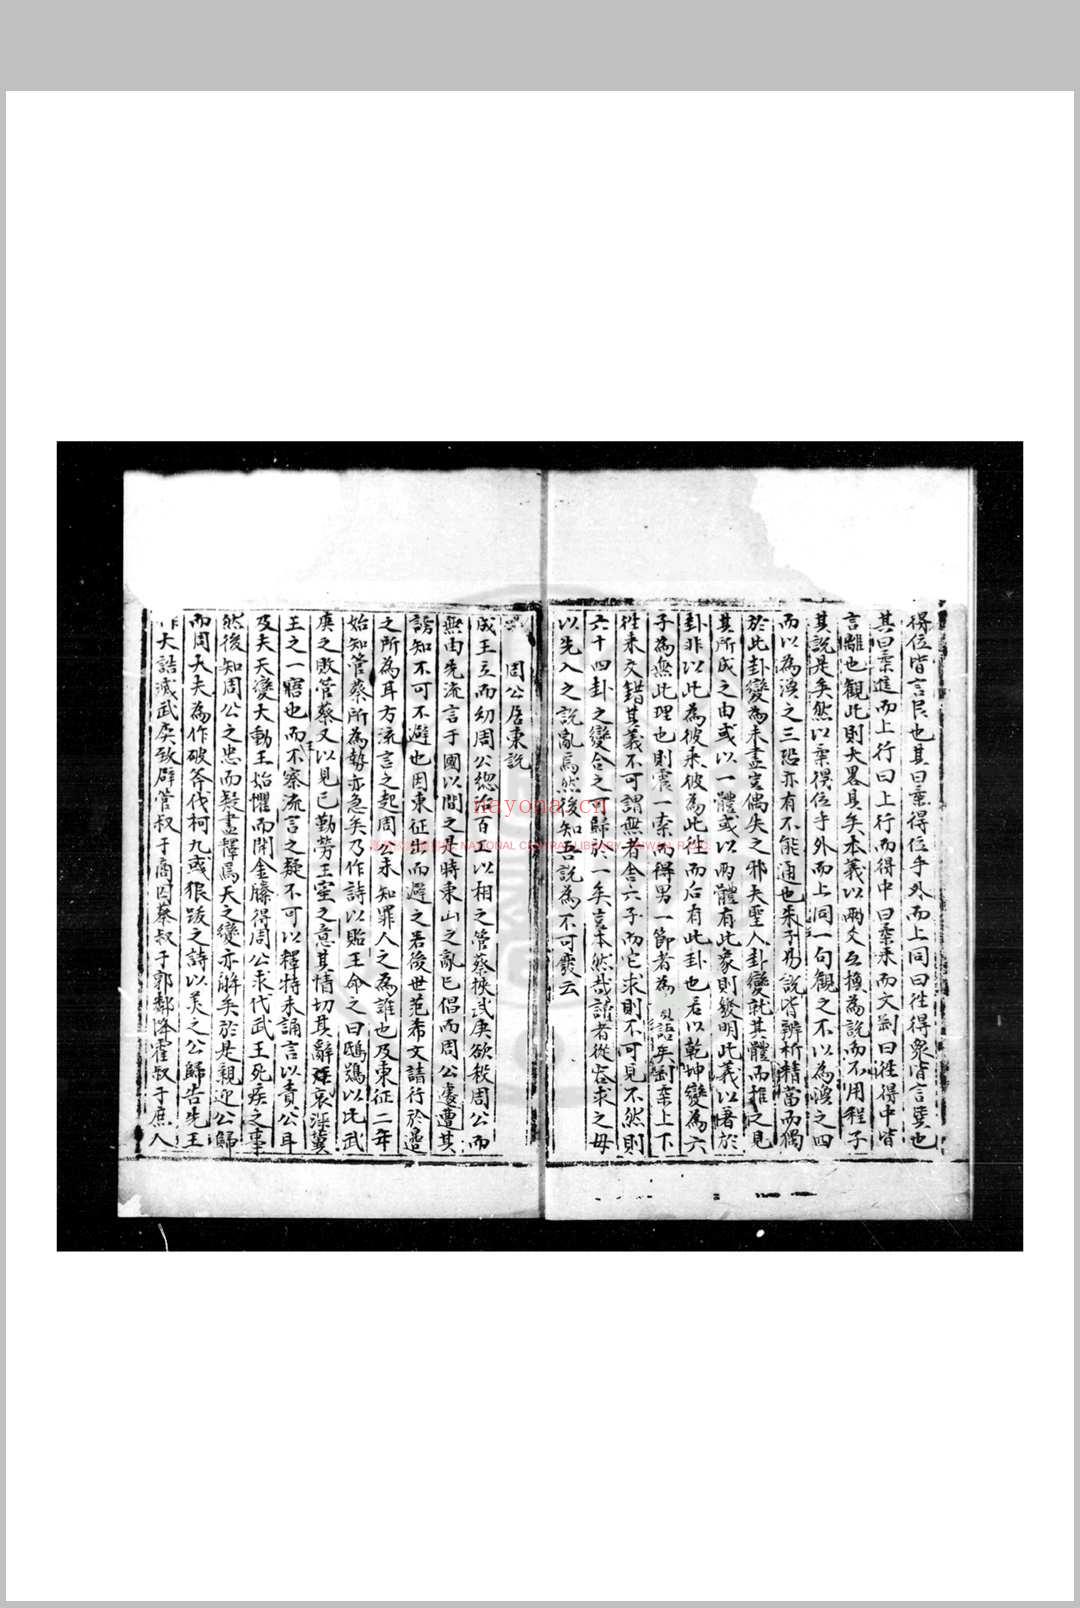 得位皆言艮也其曰柔得位乎外而上同曰往得衆皆言巽也
其曰柔進而上行曰上行而得中曰柔来而文剛曰往得中皆
言離也觀此則大畧具矣本義以兩爻互換為說而不用程子
其說是矣然以柔得位乎外而上同一句觀之不以為渙之四
而以為渙之三恐亦有不能通也朱子易說皆辨析精當而偶
於此卦變為未盡豈偶失之邪夫聖人卦變就其體而推之見
其所成之由或以一體或以兩體有此象則發明此義以著於
卦非以此為彼來彼為此往而后有此卦也若以乾坤變為六
子為無此理也則震一索而得男一節者為
矣剛柔上下
徃来交錯其義不可謂無者舍六子而它求則不可見不然則
六十四卦之變合之一歸於一矣豈本然哉讀者從容求之毋
以先入之說亂焉然後知吾說為不可廢云
周公居東說
成王立而幼周公總治百工以相之管蔡挾武庚欲秡周公而
無由先流言于國以間之是時東山之亂已倡而周公遽遭其
謗知不可不避也因東征出而避之若後世范希文請行於邊
之所為耳方流言之起周公未知罪人之為誰也及東征二年
始知管蔡所為勢亦急矣乃作詩以貽王命之曰鴟鴞以比武
庚之敗管蔡又以見已勤勞王室之意其情切其辭哀深冀
王之一寤也而王不察流言之疑不可以釋特未誦言以責公耳
及夫天變大動王始懼而開金縢得周公求代武王死疾之事
然後知周公之忠而疑盡釋焉天之變亦解矣於是親迎公歸
而周大夫為作破斧伐柯九罭狼跋之詩以美之公歸告先王
作大誥滅武庚致辟管叔于商囚蔡叔于郭鄰降霍叔于庶人
nayona.cn
NATIONAL CENTRAL LIBRARY, TAIWAN R.O.C